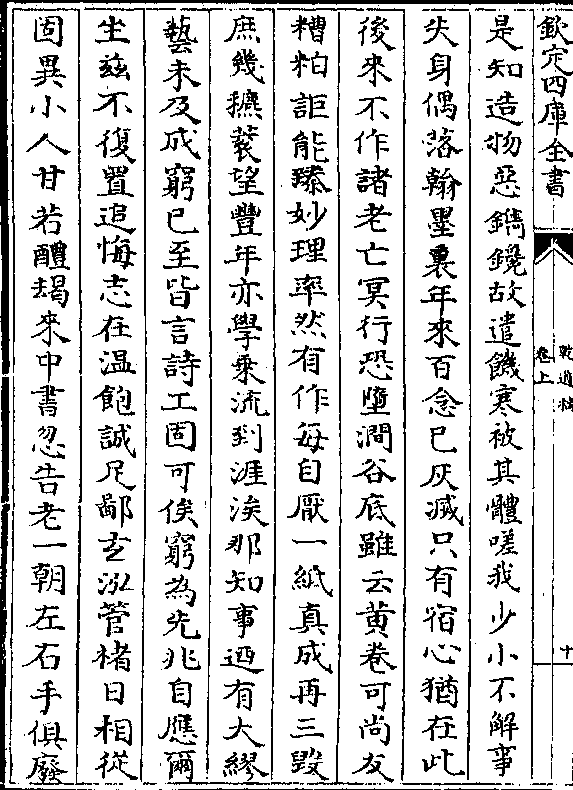 欽定四庫全書
乾道稿
卷上
十
是知造物惡鐫鑱故遣饑寒被其體嗟我少小不解事
失身偶落翰墨裏年來百念已灰滅只有宿心猶在此
後來不作諸老亡冥行恐墮澗谷底雖云黄卷可尚友
糟粕詎能臻妙理率然有作每自厭一紙真成再三毀
庶幾穮蔉望豐年亦學乘流到涯涘那知事迺有大繆
藝未及成窮已至皆言詩工固可俟窮為先兆自應爾
坐兹不復置追悔志在温飽誠足鄙玄泓管楮日相從
固異小人甘若醴朅來中書忽告老一朝左右手俱廢